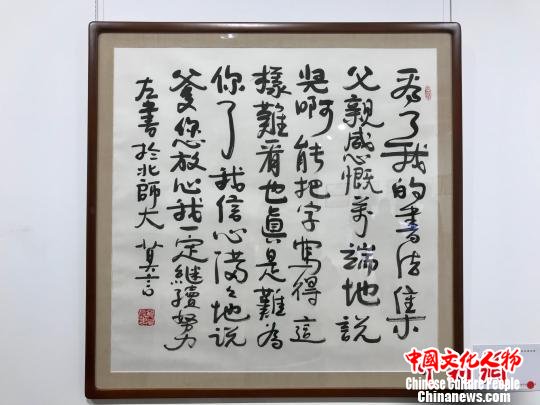 看了我的書法集
父親感慨萬端地說
兒啊能把字寫得這
樣難看也真是難為
你了我信心滿々地說
爹您放心我一定繼續努力
左書於北師大 莫言
中國文化人物
Chinese Culture People
Chinanews.com